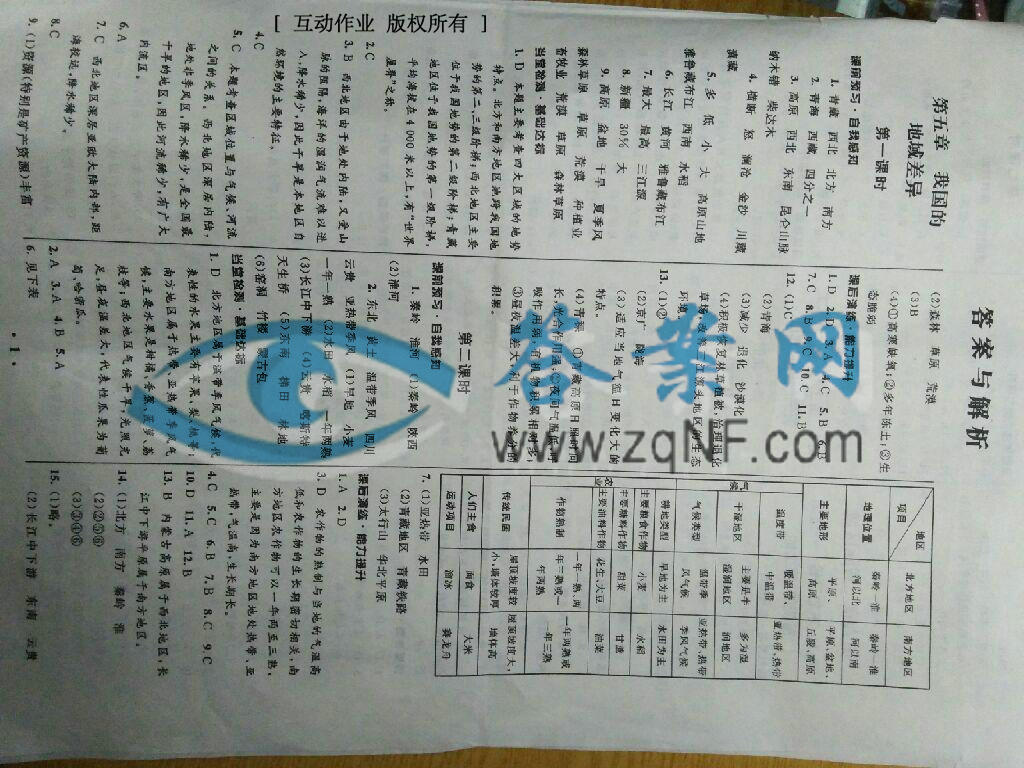 [ 互动作业 版权所有 ]
答案与解析
第五章 我国的
地域差异
第一课时
课前预习·自我感知
1. 青藏 西北 北方 南方
2. 青海 西藏 四分之一
3. 高原 西北 东南 昆仑山脉
纳木错 柴达木
4. 墙斯 怒 澜沧 金沙 川藏
滇藏
5. 多 低 小 大 高原山地
雅鲁藏布江 西南 水稻
6. 长江 黄河 雅鲁藏布江
7. 最大 最高 三江源
8. 新疆 30% 大
9. 高原 盆地 干旱 夏季风
森林草原 草原 荒漠 种植业
畜牧业 荒漠 草原 森林草原
当堂检测·基础达标
1. D 本题主要考查四大区域的地势
特点。北方和南方地区地跨我国地
势的第二、三级阶梯;西北地区主要
位于我国地势的第二级阶梯;青藏
地区位于我国地势的第一级阶梯,
平均海拔在4 000米以上,有“世界
屋脊”之称。
2. C
3. B 西北地区由于地处内陆,又受山
脉的阻隔,海洋的湿润气流难以进
入,降水稀少,因此干旱是本地区自
然环境的主要特征。
4. C
5. C 本题考查区域位置与气候、河流
之间的关系。西北地区深居内陆,
地处非季风区,降水稀少,是全国最
干旱的地区,因此河流稀少,有广大
内流区。
6. A
7. C 西北地区深居亚欧大陆内部,距
海较远,降水稀少。
8. C
9. (1)资源(特别是矿产资源)丰富
(2)森林 草原 荒漠
(3)B
(4)①高寒缺氧;②多年冻土;③生
态脆弱
课后演练·能力提升
1. D 2. D 3. A 4. C 5. B 6. B
7. C 8. B 9. C 10. C 11. B
12. (1)C
(2)青海
(3)减少 退化 沙漠化
(4)积极恢复林草植被,治理退化
草场,改善三江源头地区的生态
环境。
13. (1)②
(2)京广 陇海
(3)适应当地气温日变化大的
特点。
(4)青稞 ①青藏高原日照时间
长,光合作用强;②夜间气温低,呼
吸作用弱,有机物积累相对多;
③昼夜温差大,利于作物养分的
积累。
第二课时
课前预习·自我感知
1. 秦岭 淮河 (1)秦岭 陕西
(2)淮河
2. 东北 黄土 温带季风 四川
云贵 亚热带季风 (1)旱地 小麦
一年一熟 (2)水田 水稻 一年两熟
(3)长江中下游 (4)云贵 喀斯特
天生桥 (5)东南 梯田 林地
(6)窑洞 竹楼 蒙古包
当堂检测·基础达标
1. D 北方地区属于温带季风气候,代
表性的水果主要有苹果、梨、桃等;
南方地区属于热带、亚热带季风气
候,主要水果是柑橘、香蕉、菠萝、荔
枝等;西北地区气候干旱,光照充
足,昼夜温差大,代表性瓜果为葡
萄、哈密瓜。
2. A 3. A 4. B 5. A
6. 见下表
项目 地区 北方地区 南方地区
地理位置 秦岭—淮河以北 秦岭—淮河以南
主要地形 平原、高原 平原、盆地、丘陵、高原
气候 温度带 暖温带、中温带 亚热带、热带
干湿地区 主要是半湿润地区 多为湿润地区
气候类型 温带季风气候 亚热带、热带季风气候
农业 耕地类型 旱地为主 水田为主
主要粮食作物 小麦 水稻
主要糖料作物 甜菜 甘蔗
主要油料作物 花生、大豆 油菜
作物熟制 一年一熟、两年三熟或一年两熟 一年两熟或一年三熟
传统民居 屋顶坡度较小,墙体较厚 屋顶坡度大,墙体高
人们主食 面食 大米
运动项目 溜冰 赛龙舟
7. (1)亚热带 水田
(2)青藏地区 青藏铁路
(3)太行山 华北平原
课后演练·能力提升
1. A 2. D
3. D 农作物的熟制与当地的气温高
低和农作物的生长期密切相关,南
方地区农作物可以一年两至三熟,
主要是因为南方地区地处热带、亚
热带,气温高,生长期长。
4. C 5. C 6. B 7. B 8. C 9. C
10. D 11. A 12. B
13. B 内蒙古高原属于西北地区,长
江中下游平原属于南方地区。
14. (1)北方 南方 秦岭 淮
(2)②⑤⑥
(3)③④⑥
15. (1)略。
(2)长江中下游 东南 云贵
· 1 ·
答案网
www.zqNF.com